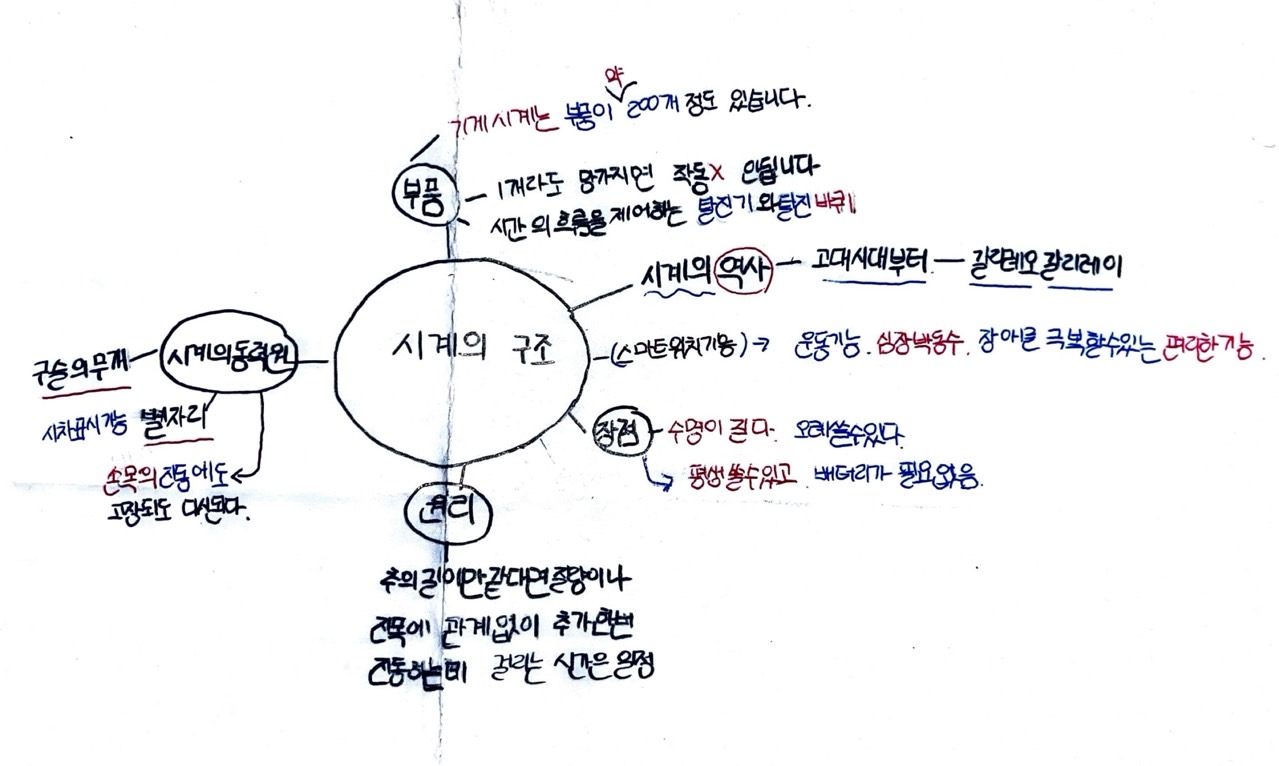 약
기계시계는 부품이 200개 정도 있습니다.
부품
1개라도 망가지면 작동X 안됩니다
시간의 흐름을 제어하는 탈진기와 탈진 바퀴
시계의 역사 - 고대시대부터 - 갈릴레오 갈릴레이
시계의 구조
(스마트워치기능) → 운동기능. 심장박동수. 장애를 극복할수있는 편리한기능.
시계의동력원
구슬의무개
시차표시기능 별자리
손목의 진동에도
고장되도 다신된다.
장점
수명이 길다. 오래쓸수있다.
평생쓸수있고. 배터리가 필요없음.
원리
추의길이만같다면질량이나
진폭에 관계없이 추가한번
진동하는데 걸리는 시간은 일정